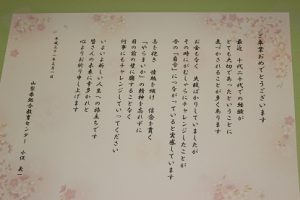 ご卒業おめでとうございます
最近、十代二十代での経験が
とても大切であったということに
気づかされることが多くあります
お金もなく、失敗ばかりしていましたが
その時にがむしゃらにチャレンジしたことが
今の「自分」につながっていると実感しています
志を抱き、情熱を傾け、信念を貫く
「やらまいか」の精神を忘れずに
目の前の壁に臆することなく
何事にもチャレンジしていってください
いよいよ新しい人生への旅立ちです
皆さんの未来に幸多かれと
心よりお祈り申し上げます
平成三十一年三月一日
山梨県総合教育センター 小俣